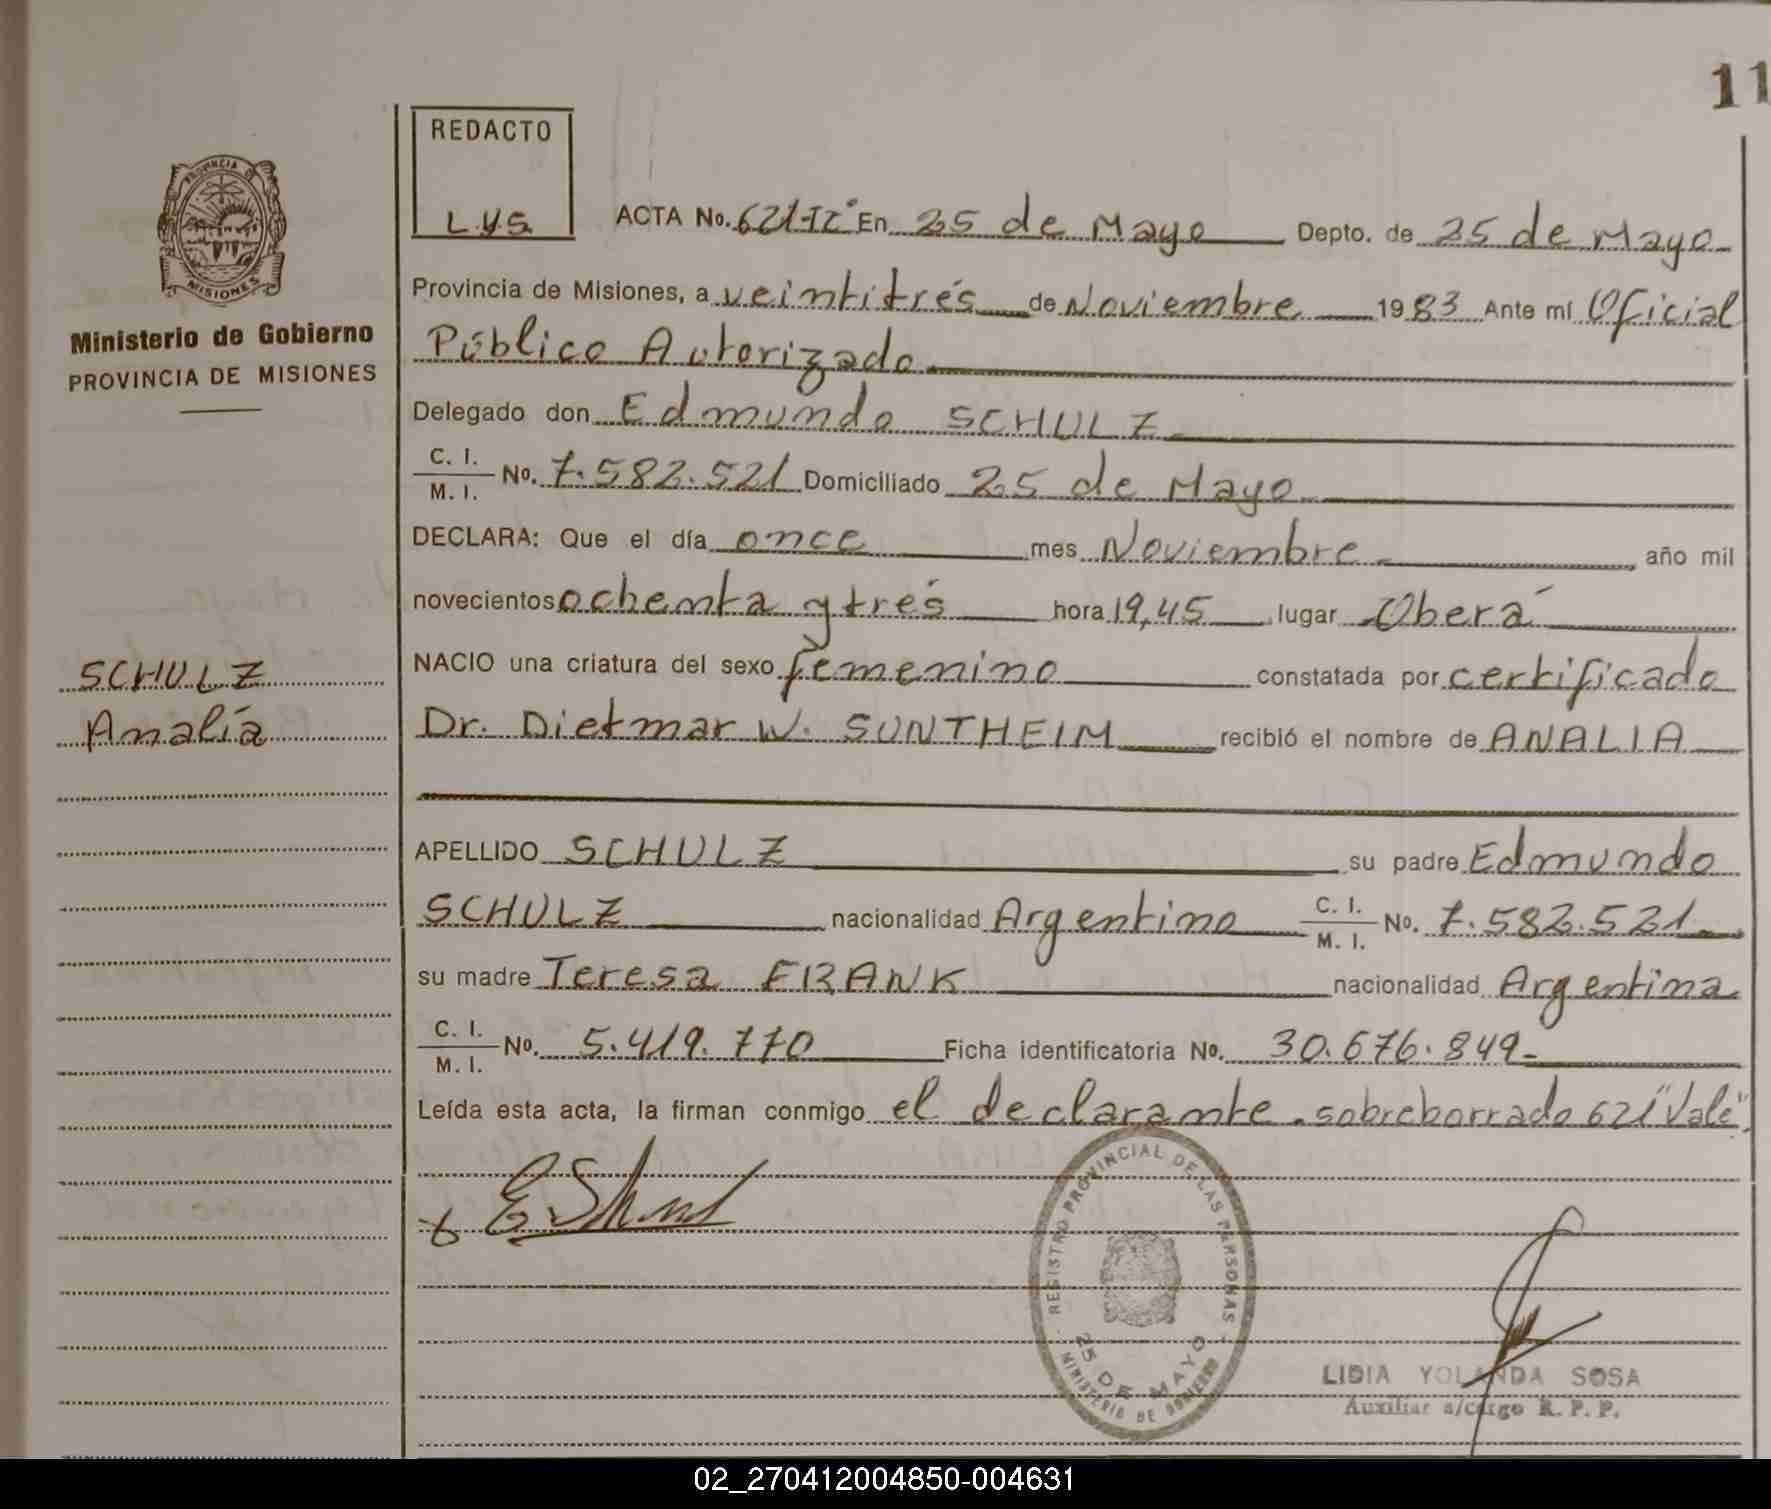 11
REDACTO
L.Y.S.
PROVINCIA DE
MISIONES
Ministerio de Gobierno
PROVINCIA DE MISIONES
ACTA No. 621-Iº En 25 de Mayo Depto. de 25 de Mayo
Provincia de Misiones, a veintitrés de Noviembre 1983 Ante mí Oficial
Público Autorizado
Delegado don Edmundo SCHULZ
C. I.
M. I. No. 7.582.521 Domiciliado 25 de Mayo
DECLARA: Que el día once mes Noviembre, año mil
novecientos ochenta y trés hora 19,45 lugar Oberá
SCHULZ
Analía
NACIO una criatura del sexo femenino constatada por certificado
Dr. Dietmar W. SUNTHEIM recibió el nombre de ANALIA
APELLIDO SCHULZ su padre Edmundo
SCHULZ nacionalidad Argentino C. I.
M. I. No. 7.582.521
su madre Teresa FRANK nacionalidad Argentina
C. I.
M. I. No. 5.419.770 Ficha identificatoria No. 30.676.849-
Leída esta acta, la firman conmigo el declarante. sobreborrado 621 "Vale".
REGISTRO PROVINCIAL DE LAS PERSONAS
25 DE MAYO
MINISTERIO DE GOBIERNO
LIDIA YOLANDA SOSA
Auxiliar a/cargo R. P. P.
02_270412004850-004631